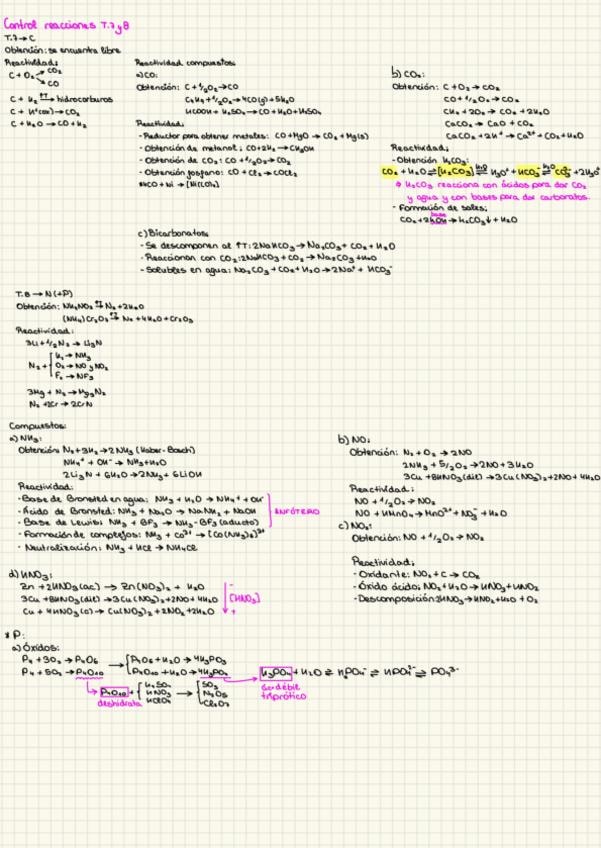 Control reacciones T.7 y 8
T.7 → C
Obtención: se encuentra libre
Reactividad:
C + O₂ → CO₂
→ CO
C + H₂ → hidrocarburos
C + H⁺(ox) → CO₂
C + H₂O → CO + H₂
Reactividad compuestos
a) CO:
Obtención: C + 1/2O₂ → CO
HCOOH + H₂SO₄ → CO + H₂O + H₂SO₄
Reactividad:
- Reductor para obtener metales: CO + MgO → CO₂ + Mg(s)
- Obtención de metanol: CO + 2H₂ → CH₃OH
- Obtención de CO₂: CO + 1/2O₂ → CO₂
- Obtención fosgeno: CO + Cl₂ → COCl₂
b) CO₂:
Obtención: C + O₂ → CO₂
CO + 1/2O₂ → CO₂
CH₄ + 2O₂ → CO₂ + 2H₂O
CaCO₃ → CaO + CO₂
CaCO₃ + 2H⁺ → Ca²⁺ + CO₂ + H₂O
Reactividad:
- Obtención H₂CO₃:
CO₂ + H₂O ⇌ [H₂CO₃] ⇌ H₃O⁺ + HCO₃⁻ ⇌ CO₃²⁻ + 2H₃O⁺
H₂CO₃ reacciona con ácidos para dar CO₂
y agua y con bases para dar carbonatos.
- Formación de sales:
CO₂ + 2KOH → K₂CO₃↓ + H₂O
base
c) Bicarbonatos:
- Se descomponen al ↑T: 2NaHCO₃ → Na₂CO₃ + CO₂ + H₂O
- Reaccionan con CO₂: 2NaHCO₃ + CO₂ → Na₂CO₃ + H₂O
- Solubles en agua: Na₂CO₃ + CO₂ + H₂O → 2Na⁺ + HCO₃⁻
T.8 → N (+P)
Obtención: NH₄NO₂ → N₂ + 2H₂O
(NH₄)Cr₂O₇ → N₂ + 4H₂O + Cr₂O₃
Reactividad:
3Li + 1/2N₂ → Li₃N
N₂ + H₂ → NH₃
O₂ → NO y NO₂
F₂ → NF₃
3Mg + N₂ → Mg₃N₂
N₂ + 2Cr → 2CrN
Compuestos:
a) NH₃:
Obtención: N₂ + 3H₂ → 2NH₃ (Haber-Bosch)
NH₄⁺ + OH⁻ → NH₃ + H₂O
2Li₃N + 6H₂O → 2NH₃ + 6LiOH
Reactividad:
- Base de Bronsted en agua: NH₃ + H₂O → NH₄⁺ + OH⁻
- Ácido de Bronsted: NH₃ + Na₂O → NaNH₂ + NaOH
- Base de Lewis: NH₃ + BF₃ → NH₃-BF₃ (aducto)
ANFÓTERO
- Formación de complejos: NH₃ + Co³⁺ → [Co(NH₃)₆]³⁺
- Neutralización: NH₃ + HCl → NH₄Cl
b) NO:
Obtención: N₂ + O₂ → 2NO
2NH₃ + 5/2O₂ → 2NO + 3H₂O
3Cu + 8HNO₃(dil) → 3Cu(NO₃)₂ + 2NO + 4H₂O
Reactividad:
NO + 1/2O₂ → NO₂
NO + HMnO₄ → Mn²⁺ + NO₃⁻ + H₂O
c) NO₂:
Obtención: NO + 1/2O₂ → NO₂
Reactividad:
- Oxidante: NO₂ + C → CO₂
- Óxido ácido: NO₂ + H₂O → HNO₃ + HNO₂
- Descomposición: 2HNO₃ → HNO₂ + H₂O + O₂
d) HNO₃:
Zn + 2HNO₃(ac) → Zn(NO₃)₂ + H₂O
3Cu + 8HNO₃(dil) → 3Cu(NO₃)₂ + 2NO + 4H₂O
Cu + 4HNO₃(c) → Cu(NO₃)₂ + 2NO₂ + 2H₂O
- [HNO₃] +
* P:
a) Óxidos:
P₄ + 3O₂ → P₄O₆ → P₄O₆ + H₂O → 4H₃PO₃
P₄ + 5O₂ → P₄O₁₀ P₄O₁₀ + H₂O → 4H₃PO₄
H₃PO₄ + H₂O ⇌ H₂PO₄⁻ ⇌ HPO₄²⁻ ⇌ PO₄³⁻
ác débil
triprótico
P₄O₁₀ + H₂SO₄ → SO₃
HNO₃ N₂O₅
HClO₄ Cl₂O₇
deshidrata